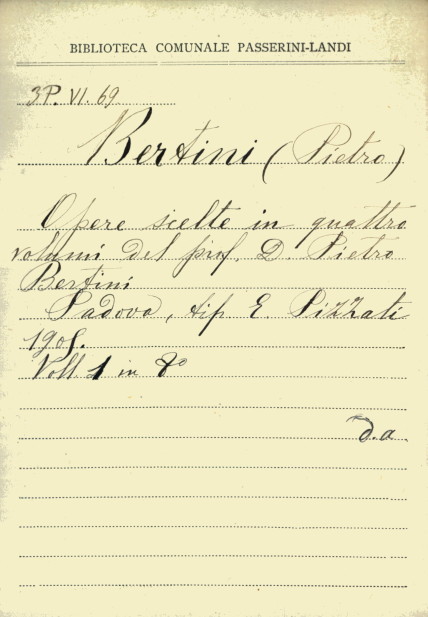 BIBLIOTECA COMUNALE PASSERINI-LANDI
3P. VI. 69
Bertini (Pietro)
Opere scelte in quattro
volumi del prof. D. Pietro
Bertini
Padova, tip. E. Pizzati
1905.
Voll. 1 in 8°
d.a.